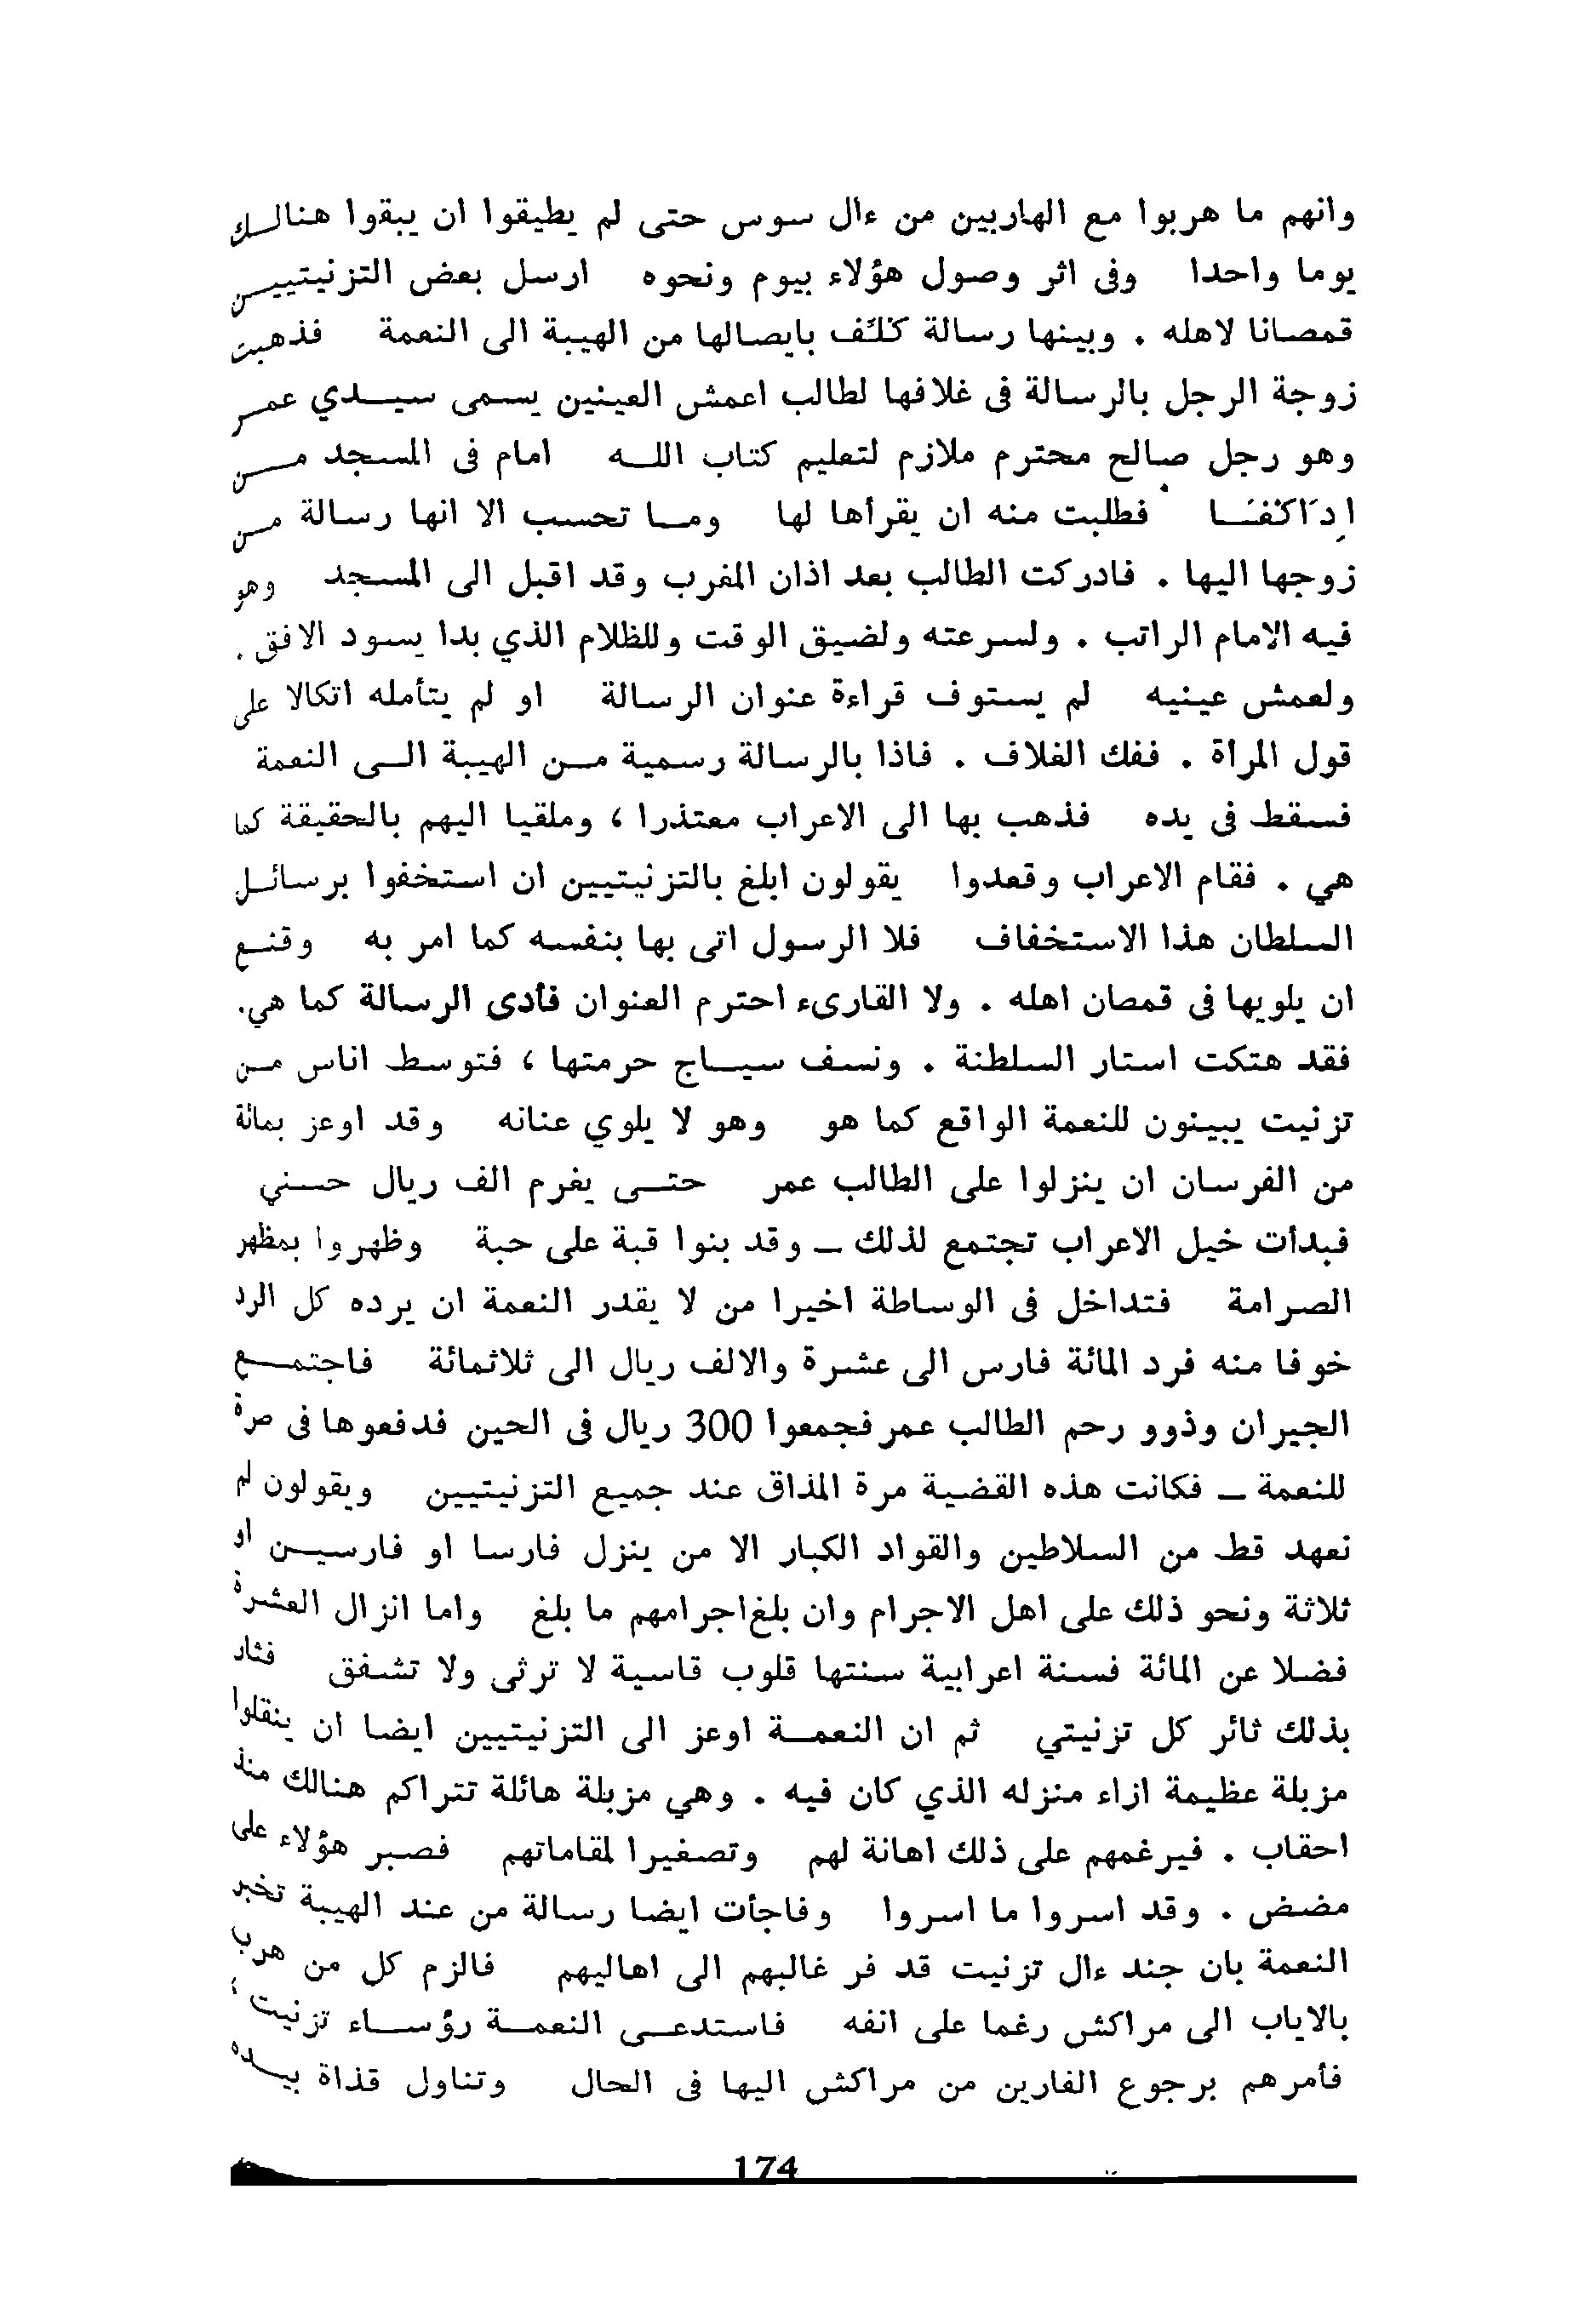 وانهم ما هربوا مع الهاربين من ءال سوس حتى لم يطيقوا ان يبقوا هنالك
يوما واحدا وفى اثر وصول هؤلاء بيوم ونحوه ارسل بعض التزنيتيين
قمصانا لاهله . وبينها رسالة كلف بايصالها من الهيبة الى النعمة فذهبت
زوجة الرجل بالرسالة فى غلافها لطالب اعمش العينين يسمى سيدي عمر
وهو رجل صالح محترم ملازم لتعليم كتاب الله امام فى المسجد من
إداكفا فطلبت منه ان يقرأها لها وما تحسب الا انها رسالة من
زوجها اليها . فادركت الطالب بعد اذان المغرب وقد اقبل الى المسجد وهو
فيه الامام الراتب . ولسرعته ولضيق الوقت وللظلام الذي بدا يسود الافق .
ولعمش عينيه لم يستوف قراءة عنوان الرسالة او لم يتأمله اتكالا على
قول المرأة . ففك الغلاف . فاذا بالرسالة رسمية من الهيبة الى النعمة
فسقط فى يده فذهب بها الى الاعراب معتذرا ، وملقيا اليهم بالحقيقة كما
هي . فقام الاعراب وقعدوا يقولون ابلغ بالتزنيتيين ان استخفوا برسائل
السلطان هذا الاستخفاف فلا الرسول اتى بها بنفسه كما امر به وقنع
ان يلويها فى قمصان اهله . ولا القارىء احترم العنوان فأدى الرسالة كما هي.
فقد هتكت استار السلطنة . ونسف سياج حرمتها ، فتوسط اناس من
تزنيت يبينون للنعمة الواقع كما هو وهو لا يلوي عنانه وقد اوعز بمائة
من الفرسان ان ينزلوا على الطالب عمر حتى يغرم الف ريال حسني
فبدأت خيل الاعراب تجتمع لذلك ــ وقد بنوا قبة على حبة وظهروا بمظهر
الصرامة فتداخل فى الوساطة اخيرا من لا يقدر النعمة ان يرده كل الرد
خوفا منه فرد المائة فارس الى عشرة والالف ريال الى ثلاثمائة فاجتمع
الجيران وذوو رحم الطالب عمر فجمعوا 300 ريال فى الحين فدفعوها فى صرة
للنعمة ــ فكانت هذه القضية مرة المذاق عند جميع التزنيتيين ويقولون لم
نعهد قط من السلاطين والقواد الكبار الا من ينزل فارسا او فارسين او
ثلاثة ونحو ذلك على اهل الاجرام وان بلغ اجرامهم ما بلغ واما انزال العشرة
فضلا عن المائة فسنة اعرابية سنتها قلوب قاسية لا ترثى ولا تشفق فثار
بذلك ثائر كل تزنيتي ثم ان النعمة اوعز الى التزنيتيين ايضا ان ينقلوا
مزبلة عظيمة ازاء منزله الذي كان فيه . وهي مزبلة هائلة تتراكم هنالك منذ
احقاب . فيرغمهم على ذلك اهانة لهم وتصغيرا لمقاماتهم فصبر هؤلاء على
مضض . وقد اسروا ما اسروا وفاجأت ايضا رسالة من عند الهيبة تخبر
النعمة بان جند ءال تزنيت قد فر غالبهم الى اهاليهم فالزم كل من هرب
بالاياب الى مراكش رغما على انفه فاستدعى النعمة رؤساء تزنيت ؛
فأمرهم برجوع الفارين من مراكش اليها فى الحال وتناول قذاة بيده
174